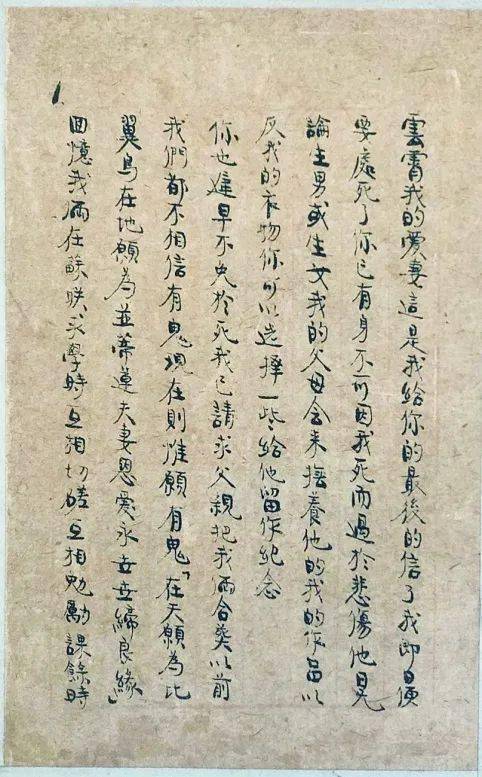 雲霄我的愛妻這是我給你的最後的信了我即日便
要處死了你已有身不可因我死而過於悲傷他日
論生男或生女我的父母会来撫養他的我的作品以
及我的衣物你可以选擇一些給他留作紀念
你也遲早不免於死我已請求父親把我倆合葬以前
我們都不相信有鬼現在則惟願有鬼「在天願為比
翼鳥在地願為並蒂蓮夫妻恩爱永世世締良緣」
回憶我倆在蘇联求學時互相切磋互相勉勵課餘時